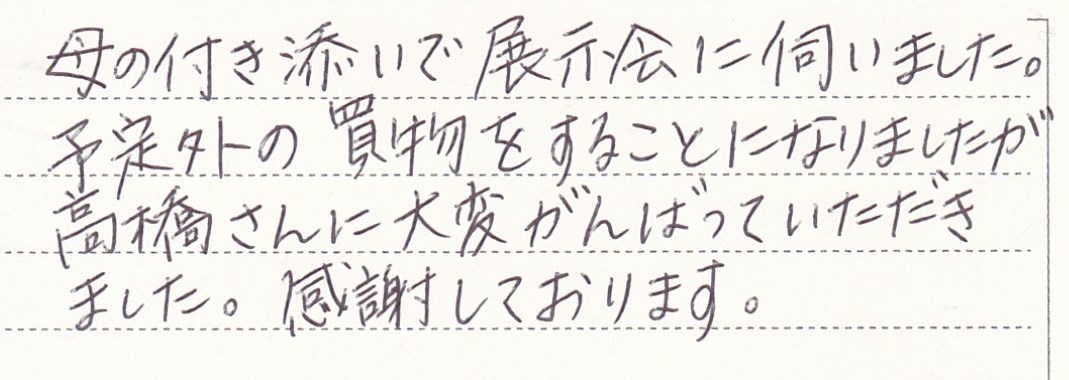 母の付き添いで展示会に伺いました。
予定外の買物をすることになりましたが
高橋さんに大変がんばっていただき
ました。感謝しております。